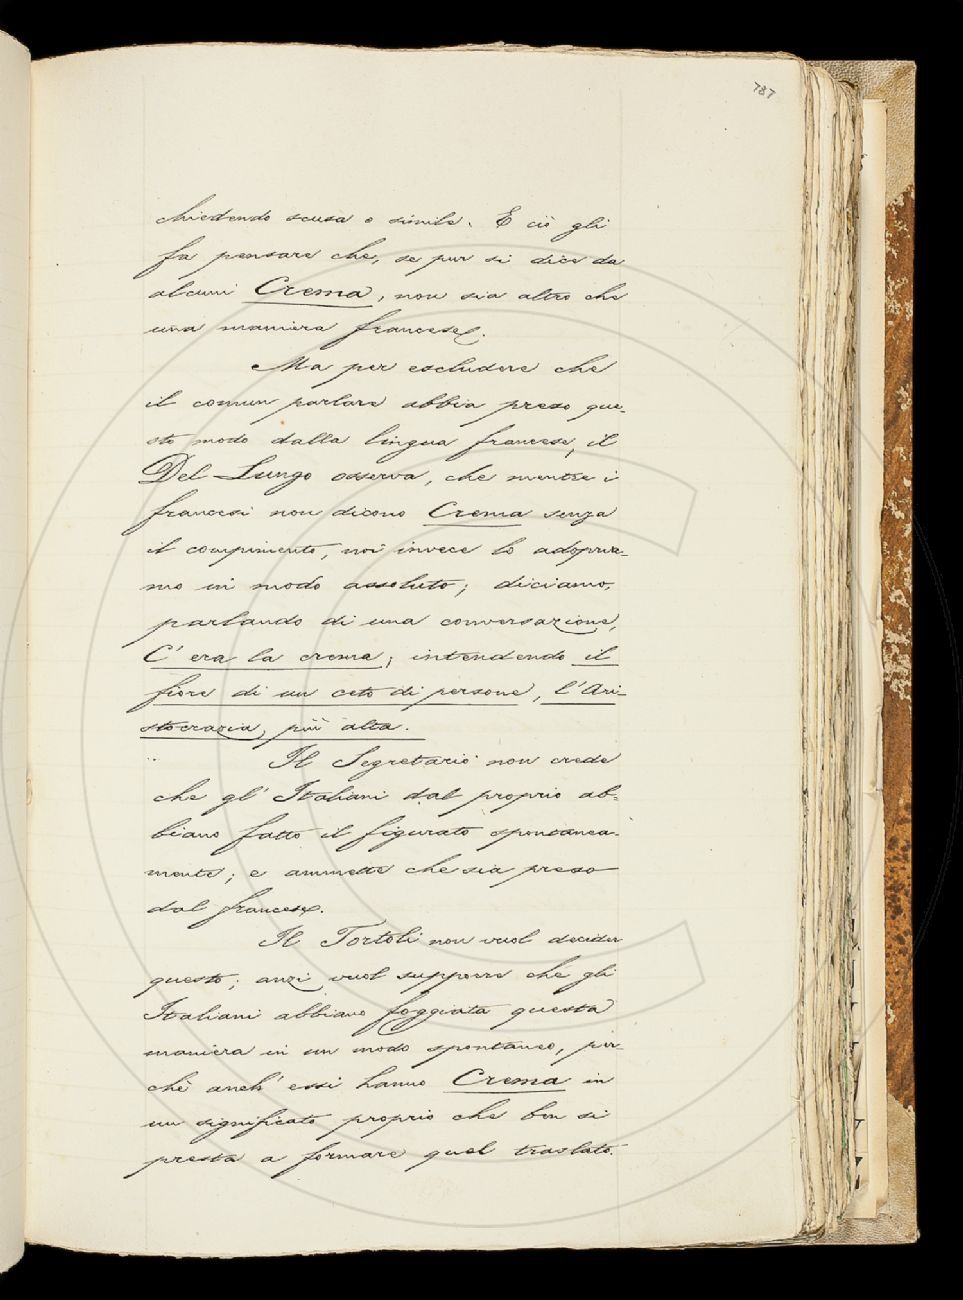 787
chiedendo scusa o simile. E ciò gli
fa pensare che, se pur si dice da
alcuni Crema, non sia altro che
una maniera francese.
Ma per escludere che
il comun parlare abbia preso que-
sto modo dalla lingua francese, il
Del Lungo osserva, che mentre i
francesi non dicono Crema senza
il compimento, noi invece lo adopria-
mo in modo assoluto; diciamo,
parlando di una conversazione,
C'era la crema; intendendo il
fiore di un ceto di persone, l'Ari-
stocrazia, più alta.
Il Segretario non crede
che gl'Italiani dal proprio ab-
biano fatto il figurato spontanea-
mente; e ammette che sia preso
dal francese.
Il Tortoli non vuol decider
questo; anzi vuol supporre che gli
Italiani abbiano foggiata questa
maniera in un modo spontaneo, per-
chè anch'essi hanno Crema in
un significato proprio che ben si
presta a formare quel traslato.